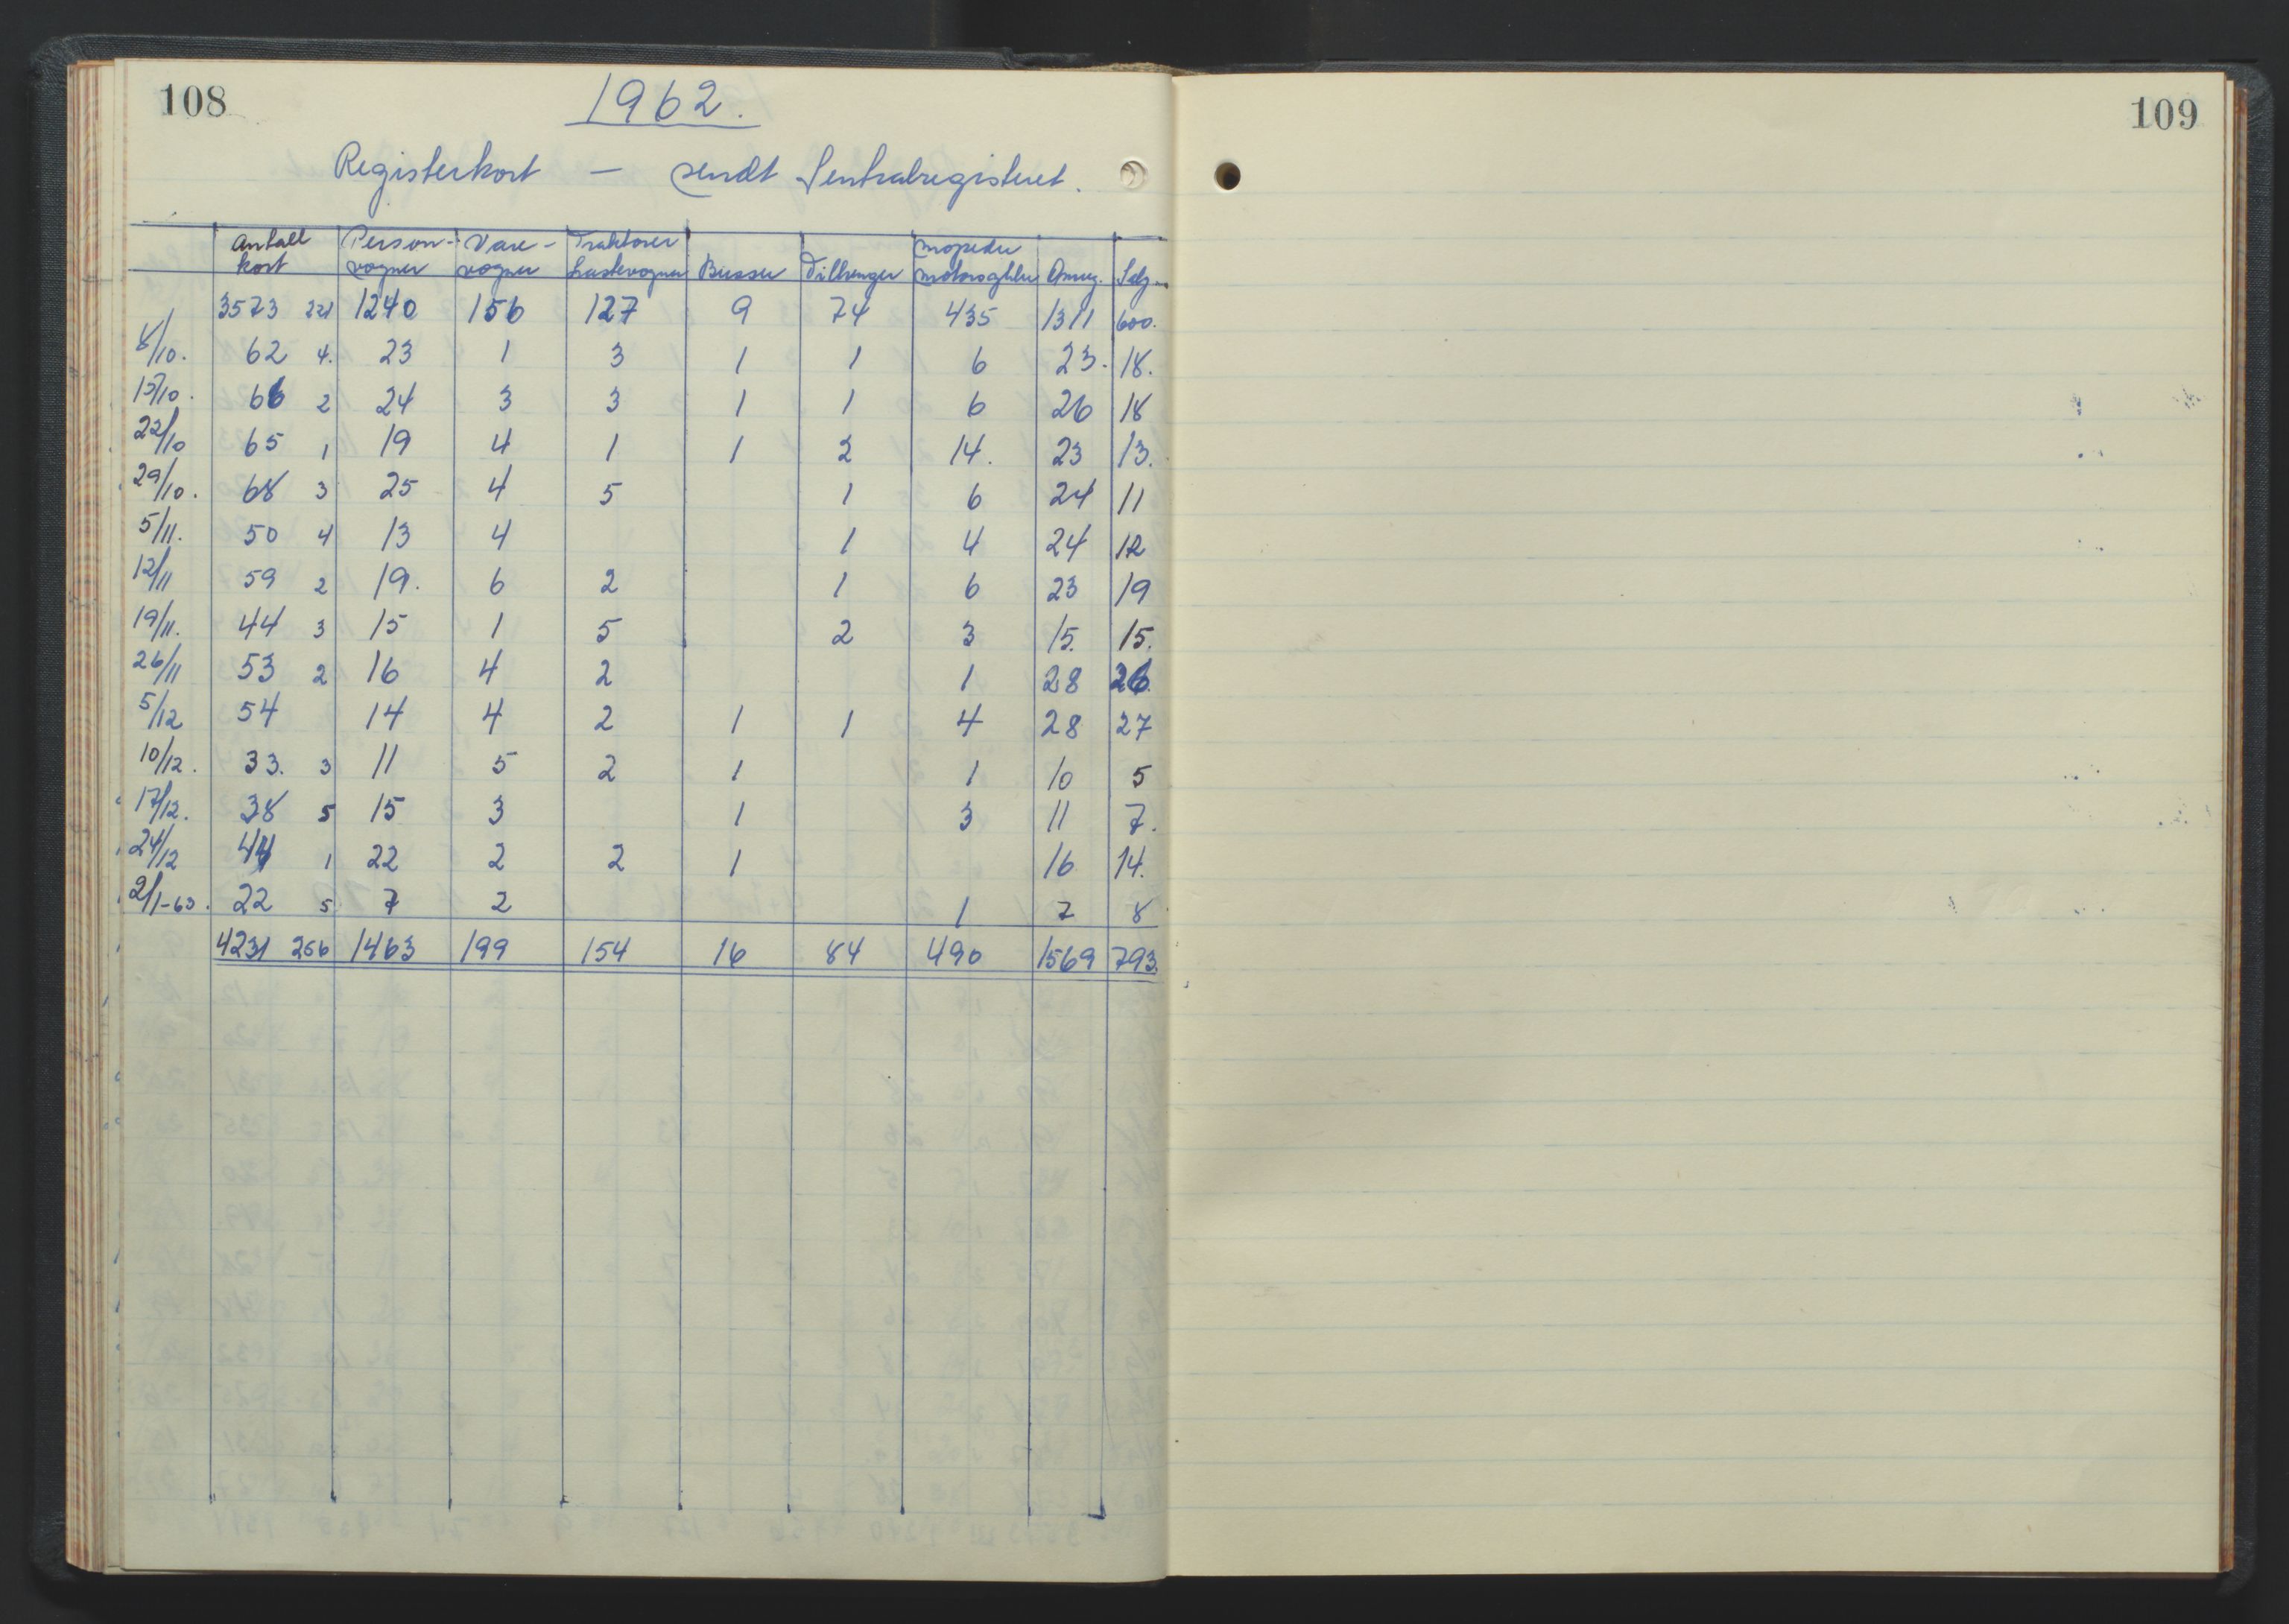 108
1962.
Registerkort — sendt Sentralregisteret.
Antall kort Person-vogner Vare-vogner Traktorer Lastevogner Busser Tilhenger mopeder motorsykler Omreg. Selg.
3573 221 1240 156 127 9 74 435 1311 600.
8/10. 62 4. 23 1 3 1 1 6 23. 18.
15/10. 66 2 24 3 3 1 1 6 26 18
22/10 65 1 19 4 1 1 2 14. 23 13.
29/10. 68 3 25 4 5 1 6 24 11
5/11. 50 4 13 4 1 4 24 12
12/11 59 2 19. 6 2 1 6 23 19
19/11. 44 3 15 1 5 2 3 15. 15.
26/11 53 2 16 4 2 1 28 26.
5/12 54 14 4 2 1 1 4 28 27
10/12. 33. 3 11 5 2 1 1 10 5
17/12. 38 5 15 3 1 3 11 7.
24/12 44 1 22 2 2 1 16 14.
2/1-63. 22 5 7 2 1 7 8
4231 256 1463 199 154 16 84 490 1569 793.
109